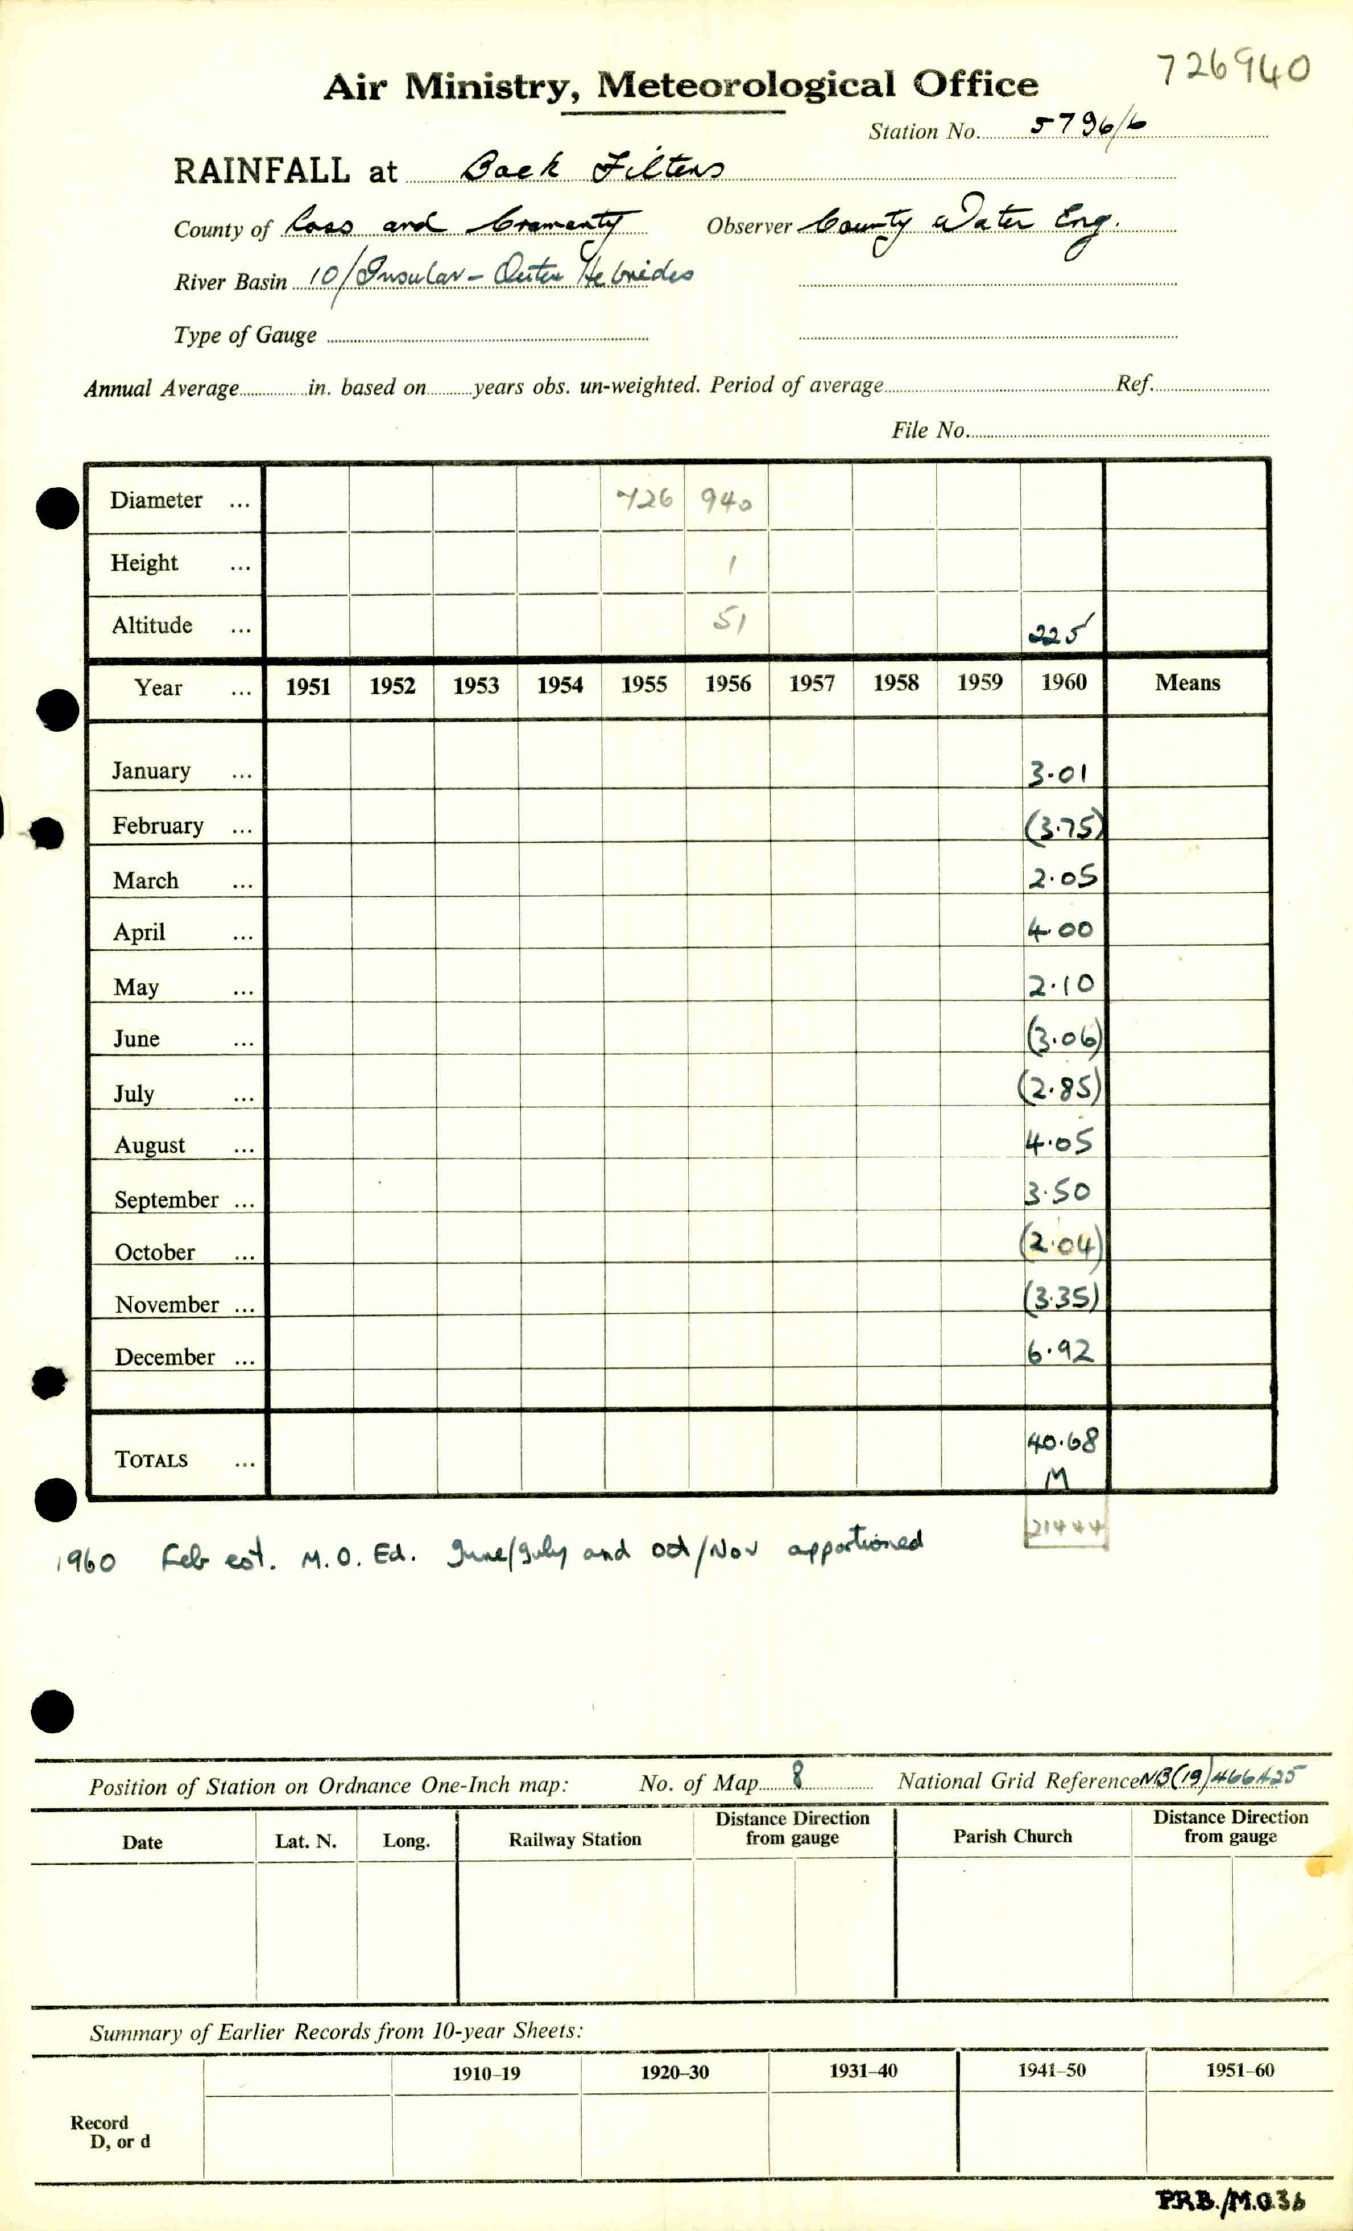 726940
Air Ministry, Meteorological Office
Station No. 5796/6
RAINFALL at Back Filters
County of Ross and Cromarty Observer County Water Eng.
River Basin 10/Insular - Outer Hebrides
Type of Gauge
Annual Average in. based on years obs. un-weighted. Period of average Ref.
File No.
Diameter ... 726 940
Height ... 1
Altitude ... 51 225
Year ... 1951 1952 1953 1954 1955 1956 1957 1958 1959 1960 Means
January ... 3.01
February ... (3.75)
March ... 2.05
April ... 4.00
May ... 2.10
June ... (3.06)
July ... (2.85)
August ... 4.05
September ... 3.50
October ... (2.04)
November ... (3.35)
December ... 6.92
TOTALS ... 40.68
M
21444
1960 Feb est. M.O. Ed. June/July and Oct/Nov apportioned
Position of Station on Ordnance One-Inch map: No. of Map 8 National Grid Reference NB(19)466425
Date Lat. N. Long. Railway Station Distance Direction from gauge Parish Church Distance Direction from gauge
Summary of Earlier Records from 10-year Sheets:
1910–19 1920–30 1931–40 1941–50 1951–60
Record
D, or d
P.R.B./M.O.36